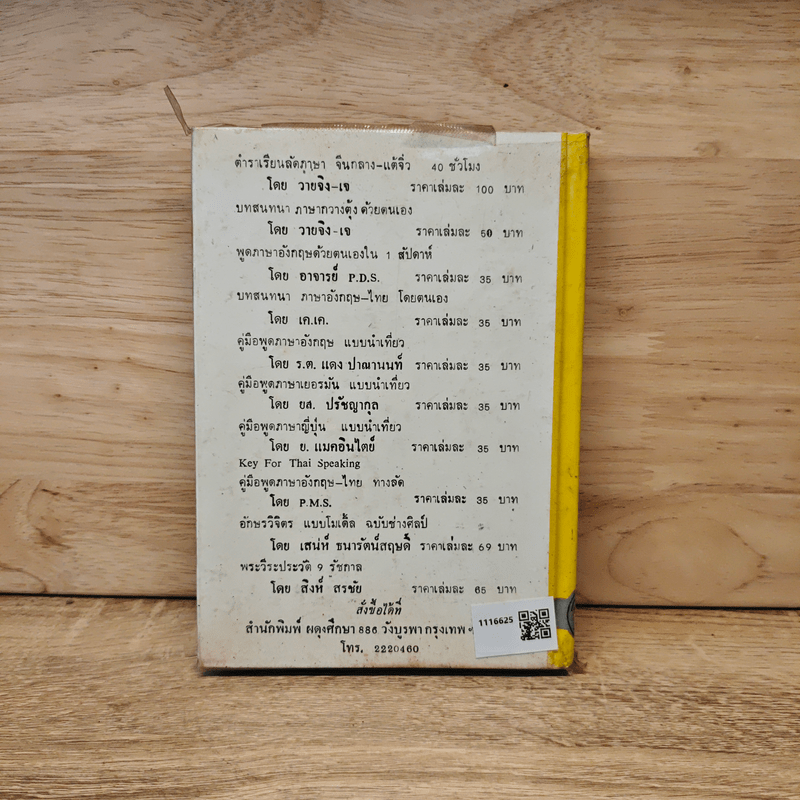 ตำราเรียนลัดภาษา จีนกลาง–แต้จิ๋ว 40 ชั่วโมง
โดย วายจิง-เจ ราคาเล่มละ 100 บาท
บทสนทนา ภาษากวางตุ้ง ด้วยตนเอง
โดย วายจิง-เจ ราคาเล่มละ 60 บาท
พูดภาษาอังกฤษด้วยตนเองใน 1 สัปดาห์
โดย อาจารย์ P.D.S. ราคาเล่มละ 35 บาท
บทสนทนา ภาษาอังกฤษ–ไทย โดยตนเอง
โดย เค.เค. ราคาเล่มละ 35 บาท
คู่มือพูดภาษาอังกฤษ แบบนำเที่ยว
โดย ร.ต. แดง ปาณานนท์ ราคาเล่มละ 35 บาท
คู่มือพูดภาษาเยอรมัน แบบนำเที่ยว
โดย ยส. ปรัชญากุล ราคาเล่มละ 35 บาท
คู่มือพูดภาษาญี่ปุ่น แบบนำเที่ยว
โดย ย. แมคอินไตย์ ราคาเล่มละ 35 บาท
Key For Thai Speaking
คู่มือพูดภาษาอังกฤษ–ไทย ทางลัด
โดย P.M.S. ราคาเล่มละ 35 บาท
อักษรวิจิตร แบบโมเด็ล ฉบับช่างศิลป์
โดย เสน่ห์ ธนารัตน์สฤษดิ์ ราคาเล่มละ 69 บาท
พระวีระประวัติ 9 รัชกาล
โดย สิงห์ สรชัย ราคาเล่มละ 65 บาท
สั่งซื้อได้ที่
สำนักพิมพ์ ผดุงศึกษา 886 วังบูรพา กรุงเทพ
โทร. 2220460
1116625